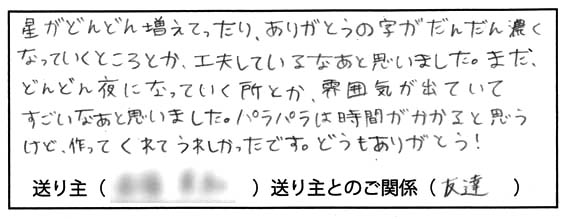 星がどんどん増えてったり、ありがとうの字がだんだん濃く
なっていくところとか、工夫しているなあと思いました。まだ、
どんどん夜になっていく所とか、雰囲気が出ていて
すごいなあと思いました。パラパラは時間がかかると思う
けど、作ってくれてうれしかったです。どうもありがとう!
送り主( )送り主とのご関係(友達 )